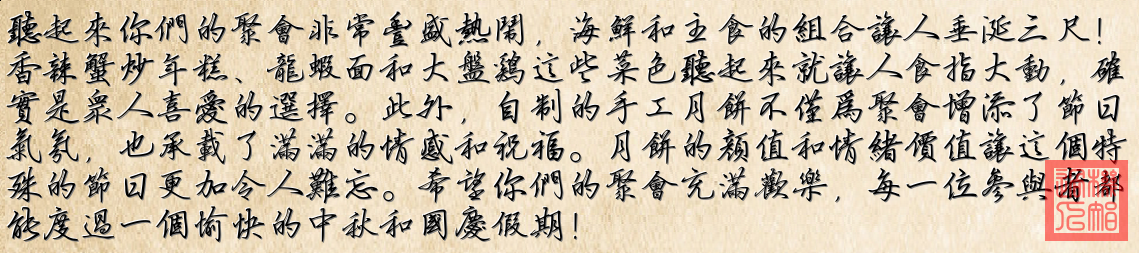 聽起來你們的聚會非常豐盛熱鬧，海鮮和主食的組合讓人垂涎三尺！
香辣蟹炒年糕、龍蝦面和大盤鷄這些菜色聽起來就讓人食指大動，確
實是衆人喜愛的選擇。此外，自制的手工月餅不僅爲聚會增添了節日
氣氛，也承載了滿滿的情感和祝福。月餅的顔值和情緒價值讓這個特
殊的節日更加令人難忘。希望你們的聚會充滿歡樂，每一位參與者都
能度過一個愉快的中秋和國慶假期！